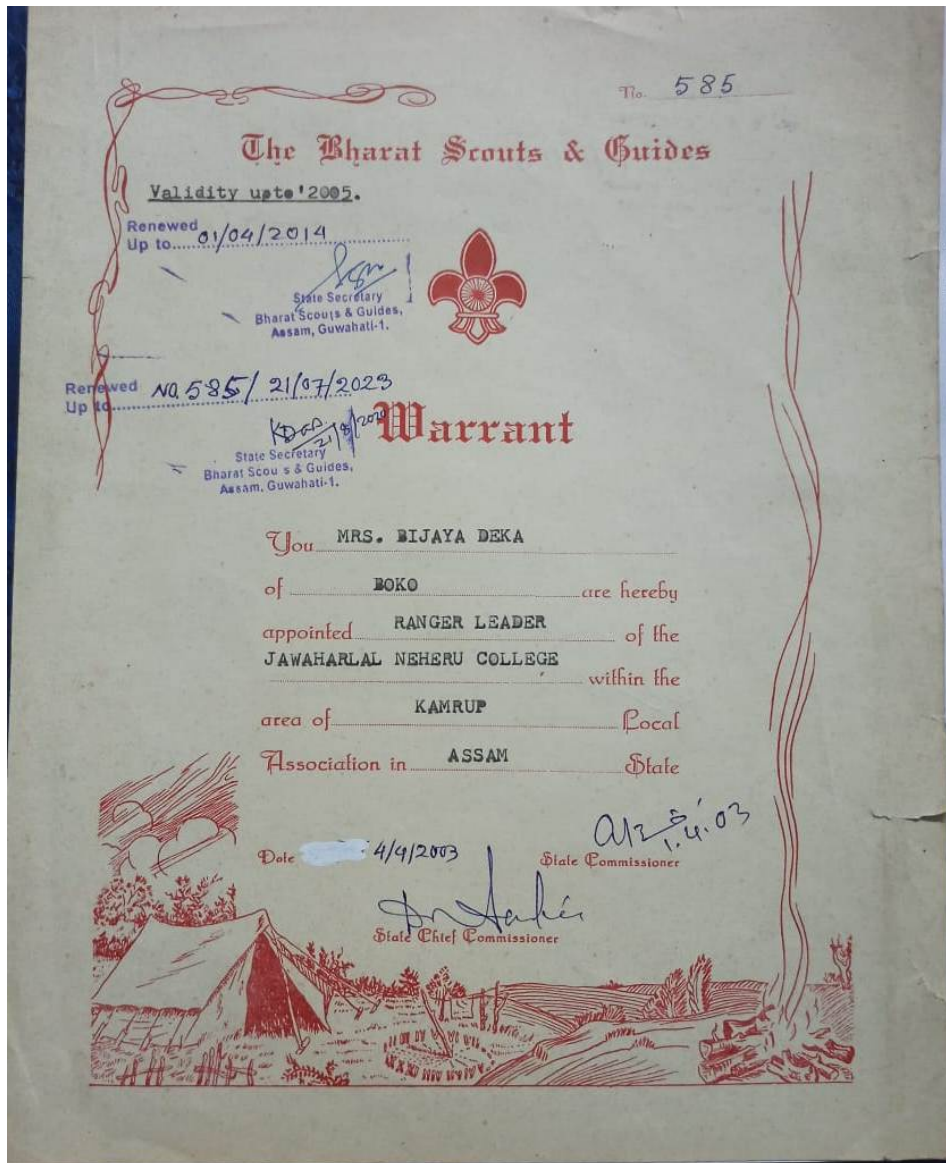 No. 585
The Bharat Scouts & Guides
Validity upto'2005.
Renewed
Up to 01/04/2014
State Secretary
Bharat Scouts & Guides,
Assam, Guwahati-1.
Renewed
Up to NO. 585/ 21/07/2023
21/8/2020
State Secretary
Bharat Scou s & Guides,
Assam, Guwahati-1.
Warrant
You MRS. BIJAYA DEKA
of BOKO are hereby
appointed RANGER LEADER of the
JAWAHARLAL NEHERU COLLEGE
within the
area of KAMRUP Local
Association in ASSAM State
Date 4/4/2003
1.4.03
State Commissioner
State Chief Commissioner